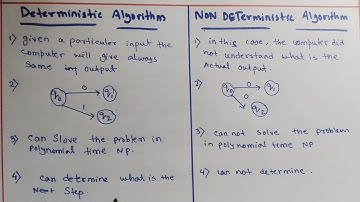 Deterministic Algorithm
1) given a particuler input the
computer will give always
Same output
2)
q0 0 q1
1 q2
3) can Slove the problem in
polynomial time NP.
4) can determine what is the
Next Step.
NON DETerministic Algorithm
1) in this code, the computer did
not understand what is the
Actual output.
2)
q0 0 q1
0 q2
3) can not solve the problem
in polynomial time NP
4) can not determine.